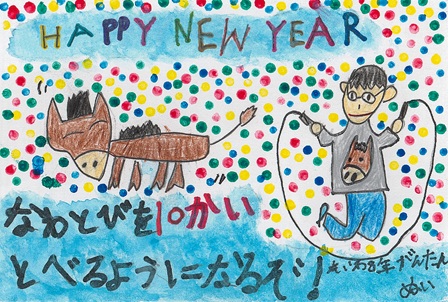 HAPPY NEW YEAR
なわとびを10かい
とべるようになるぞ!
れいわ8年がんたん
ぬい